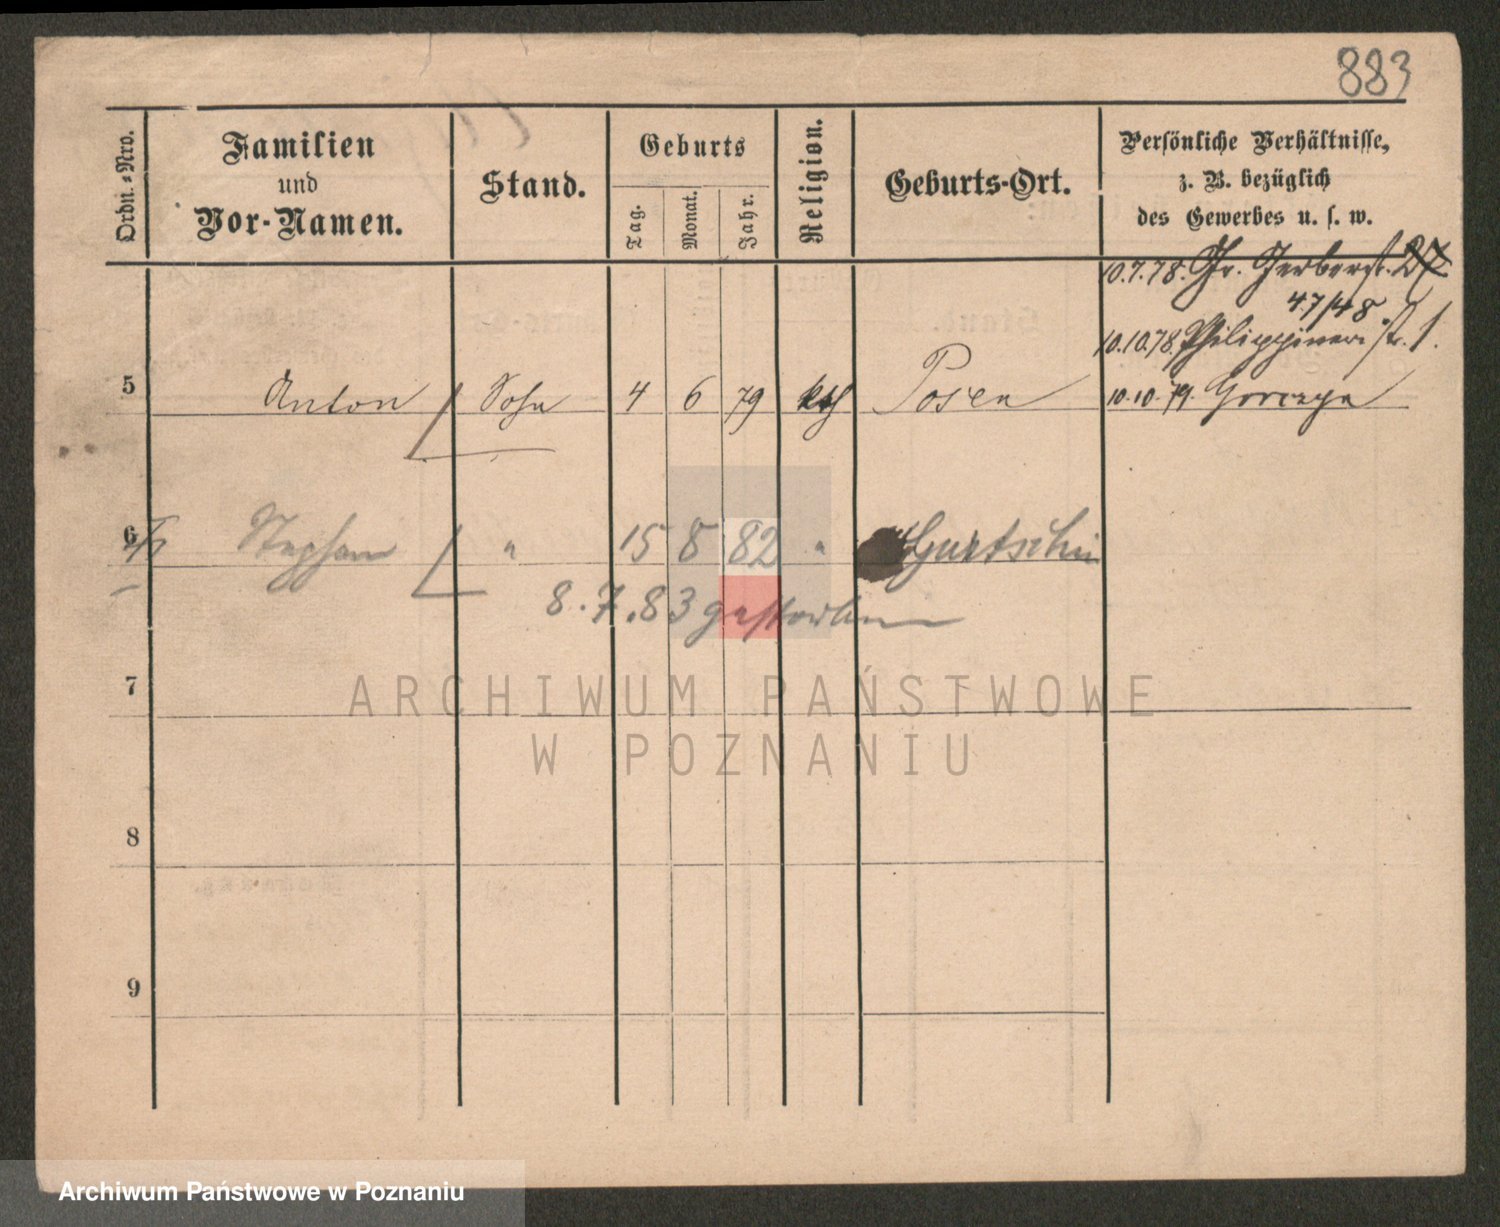 883
Ordn.-Nro.
Familien
und
Vor-Namen.
Stand.
Geburts
Tag.
Monat.
Jahr.
Religion.
Geburts-Ort.
Persönliche Verhältnisse,
z. B. bezüglich
des Gewerbes u. s. w.
10.7.78. Gr. Gerberstr. 27
47/48.
10.10.78. Philippinenstr. 1.
5 Anton Sohn 4 6 79 kth Posen 10.10.79. Gorczyn
6 Stephan " 15 8 82 " Gurtschin
8.7.83 gestorben
7
ARCHIWUM PAŃSTWOWE
W POZNANIU
8
9
Archiwum Państwowe w Poznaniu